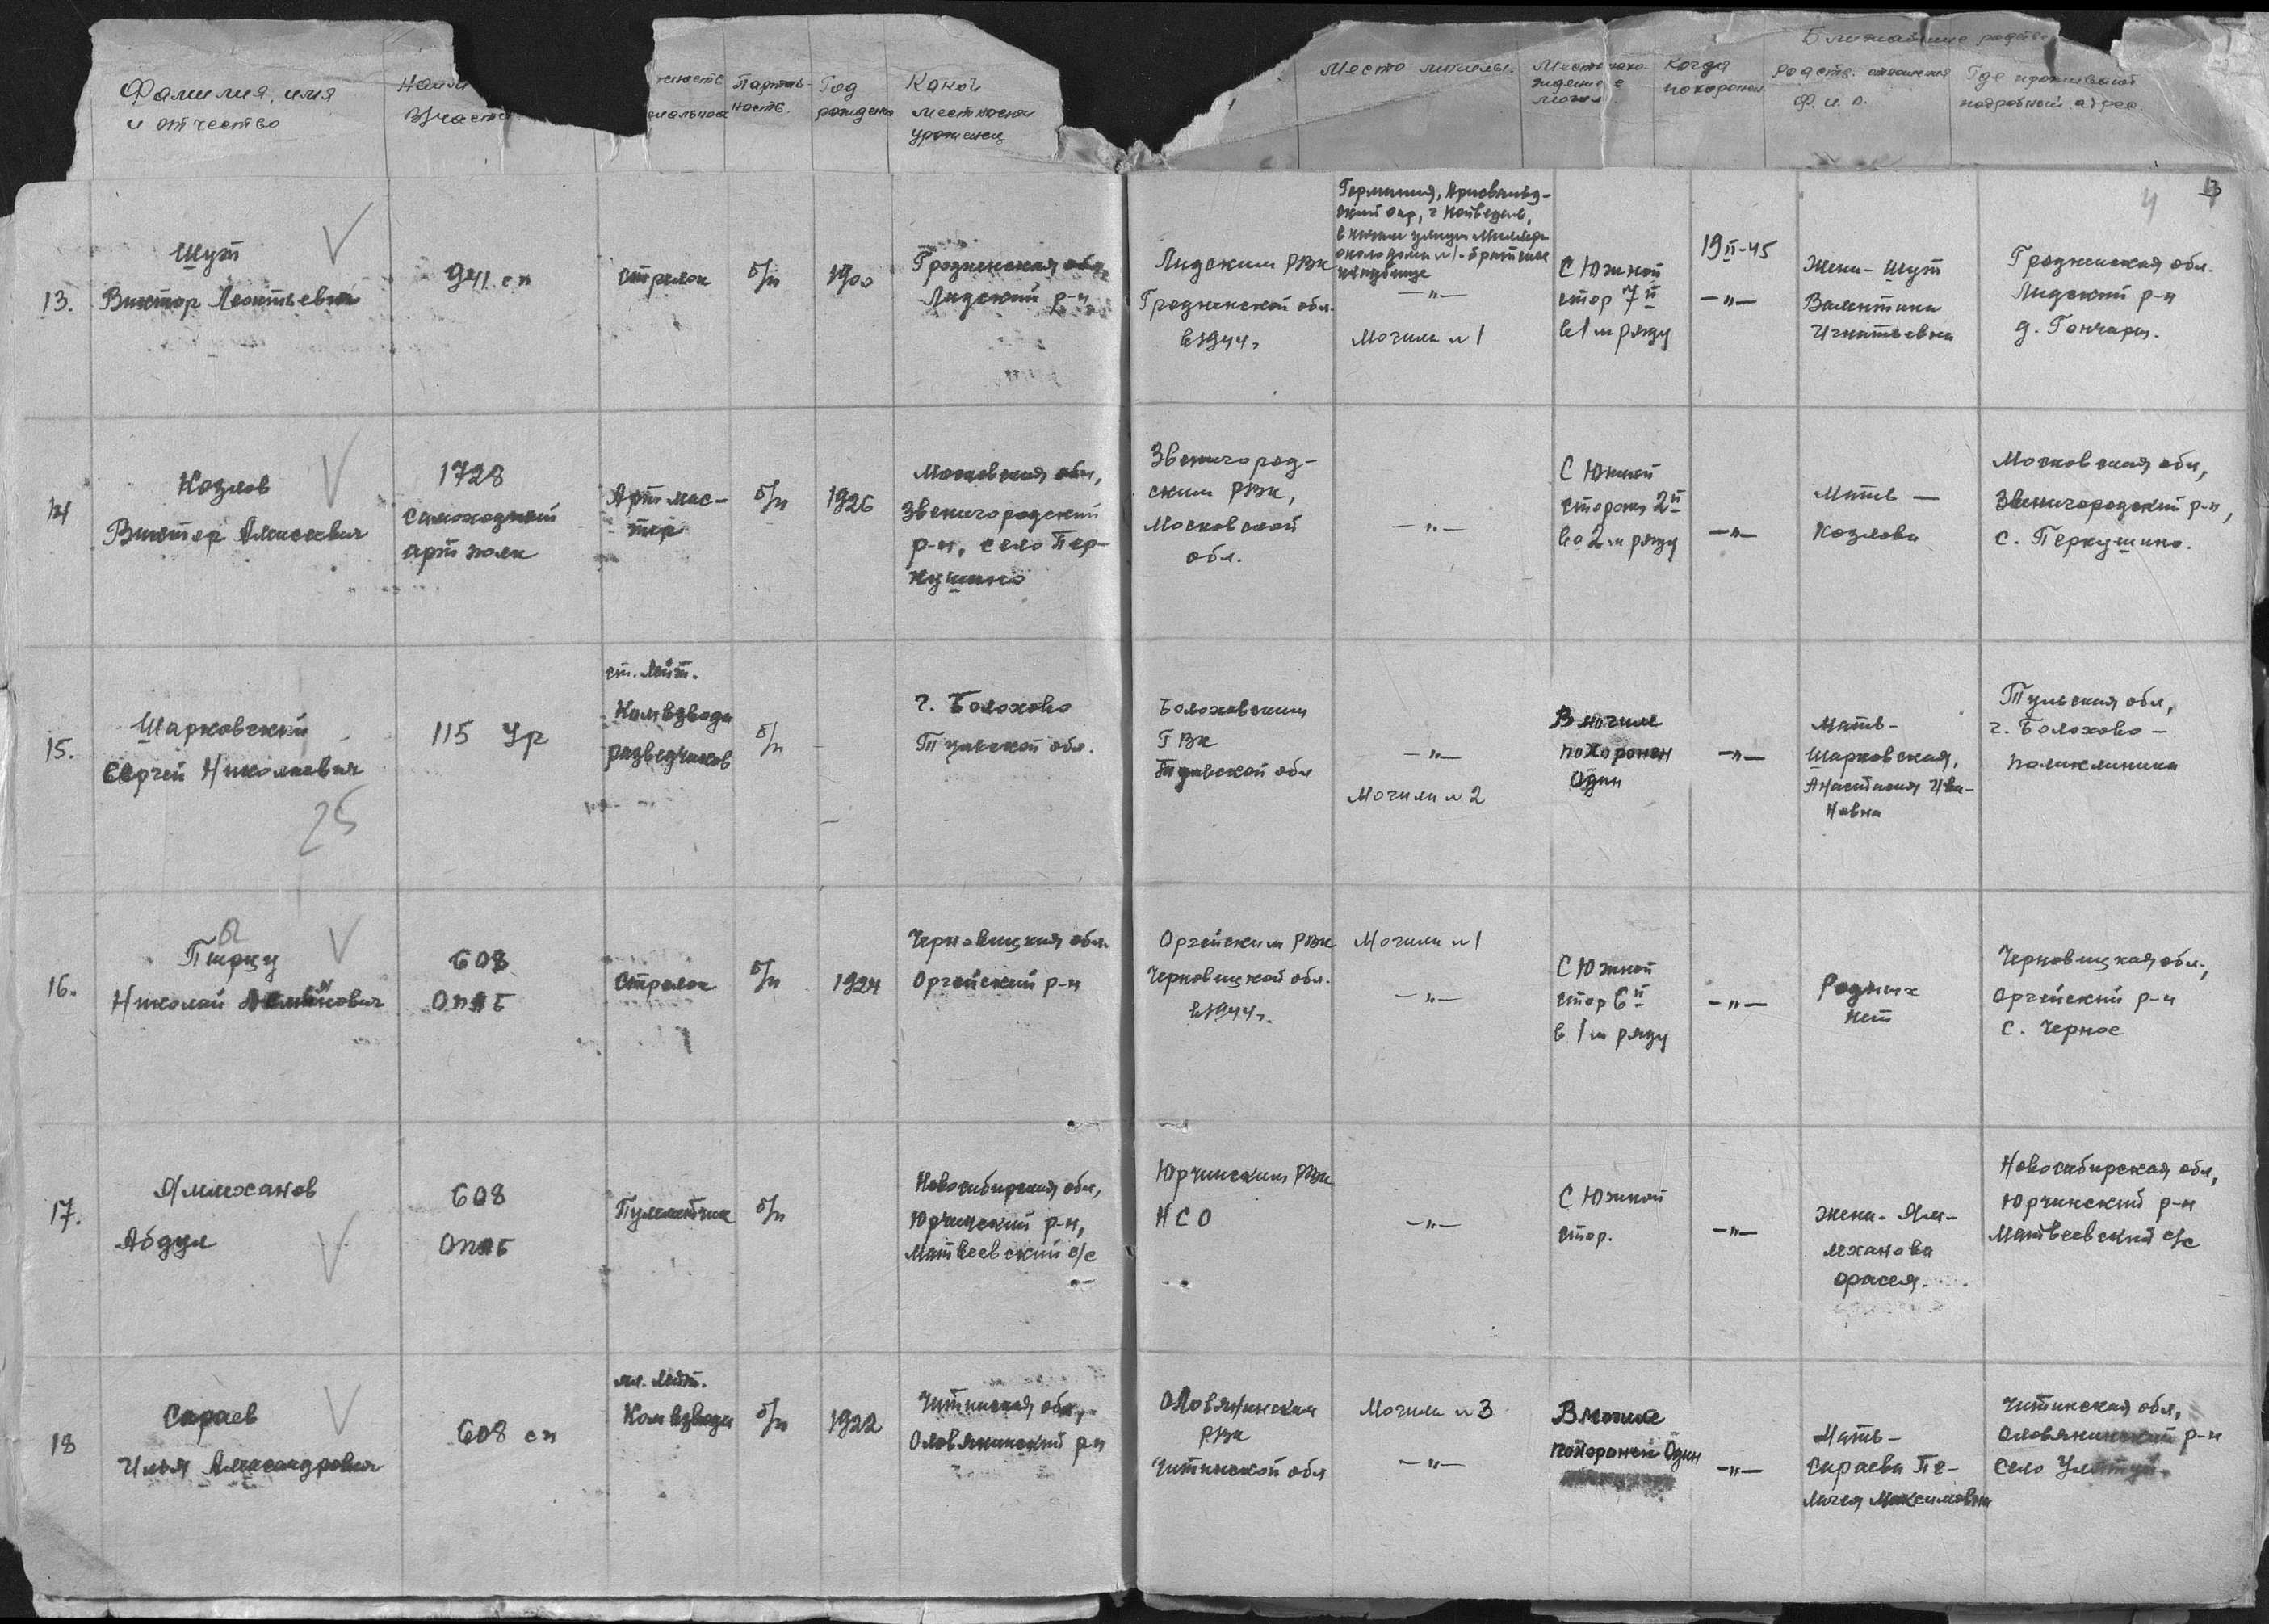 Фамилия, имя
и отчество
Наим
Участ
Партий-
ность.
Год
рождения
Какой
местности
уроженец
Место могилы.
Местонахо-
ждение в
могил.
Когда
похоронен
Ближайшие родств
Родств. отношения
Ф. и. о.
Где проживают
подробный адрес
4
13.
Шут
Виктор Леонтьевич
941 сп
стрелок
б/п
1900
Гродненская обл,
Лидский р-н
Лидским РВК
Гродненской обл.
в 1944г
Германия,
окр, г
в конце улицы
около дома №1 - братское
кладбище
—"—
Могила №1
С Южной
стор 7й
в 1м ряду
19 II-45
—"—
Жена - Шут
Валентина
Игнатьевна
Гродненская обл.
Лидский р-н
д. Гончары.
14
Козлов
Виктор Алексеевич
1728
самоходный
арт полк
Арт мас-
тер
б/п
1926
Московская обл,
Звенигородский
р-н, село Пер-
кушино
Звенигород-
ским РВК,
Московской
обл.
—"—
С Южной
стороны 2й
во 2м ряду
—"—
Мать —
Козлова
Московская обл,
Звенигородский р-н,
с. Перкушино.
15.
Шарковский
Сергей Николаевич
25
115 Ур
ст. Лейт.
Комвзвода
разведчиков
б/п
г. Болохово
Тульской обл.
Болоховским
ГВК
Тульской обл
—"—
Могила №2
В могиле
похоронен
Один
—"—
Мать-
Шарковская,
Анастасия Ива-
новна
Тульская обл,
г. Болохово -
поликлиника
16.
Николай
608
ОПАБ
стрелок
б/п
1924
Черновицкая обл.
Оргейский р-н
Оргейским РВК
Черновицкой обл.
в 1944г.
Могила №1
—"—
С Южной
стор 6й
в 1м ряду
—"—
Родных
нет
Черновицкая обл.,
Оргейский р-н
с. Черное
17.
Ямлиханов
Абдул
608
ОПАБ
Пулеметчик
б/п
Новосибирская обл,
Юргинский р-н,
Матвеевский с/с
Юргинским РВК
НСО
—"—
С Южной
стор.
—"—
жена - Ям-
леханова
Новосибирская обл,
Юргинский р-н
Матвеевский с/с
18
Сараев
Илья Александрович
608 сп
мл. Лейт.
Ком взвода
б/п
1922
Читинская обл,
Оловянинский р-н
Оловянинским
РВК
Читинской обл
Могила №3
—"—
В могиле
похоронен Один
—"—
Мать-
Сараева Пе-
лагея Максимовна
Читинская обл,
Оловянинский р-н
село